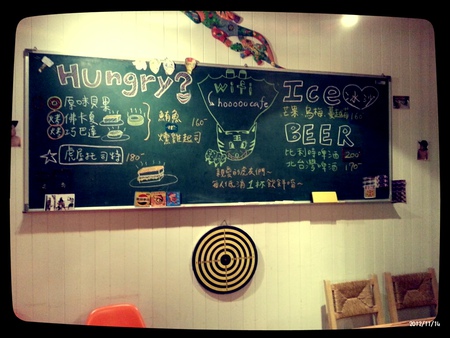 Hungry?
原味貝果
佛卡夏
巧巴達
鮪魚
or
燻雞起司
160-
虎屋托司特 180-
Wifi
hooooocafe
親愛的虎友們~
每人低消1杯飲料唷~
Ice 冰沙
芒果.烏梅.蔓越莓
BEER
比利時啤酒 200-
北台灣啤酒 170-
2012/11/14